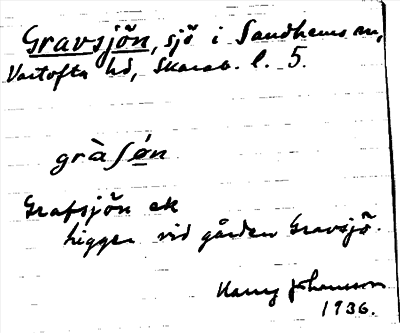 Gravsjön, sjö i Sandhems sn,
Vartofta hd, Skarab. l. 5.
gràʃón
Grafsjön ek
ligger vid gården Gravsjö.
Harry Johansson
1936.